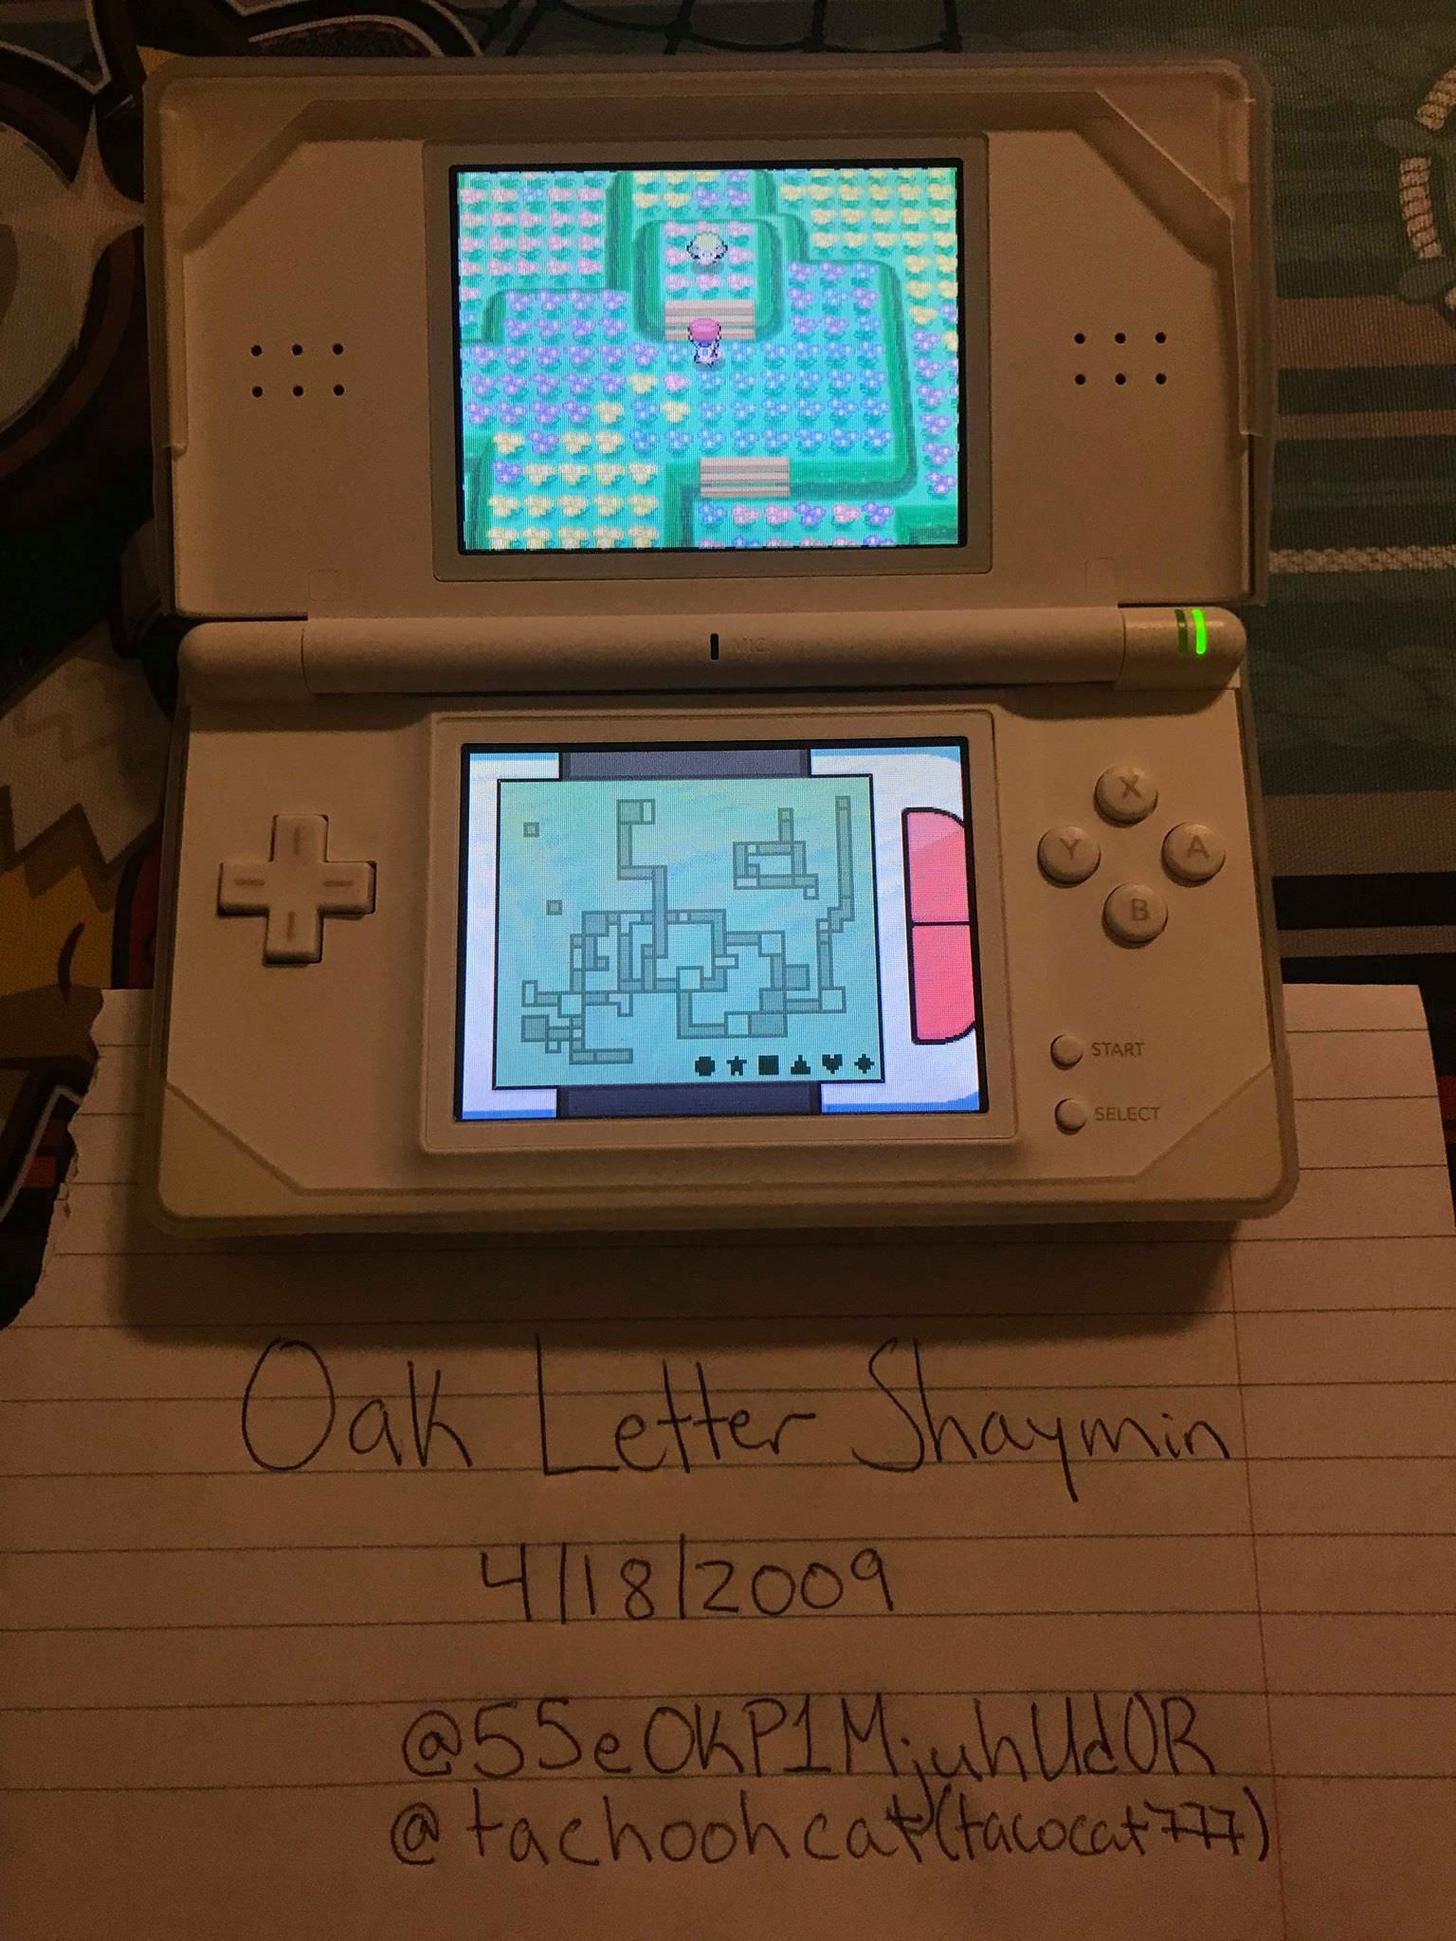 MIC.
X
Y
A
B
START
SELECT
Oak Letter Shaymin
4/18/2009
@55eOKP1MjuhUdOR
@tachoohcat(tacocat777)